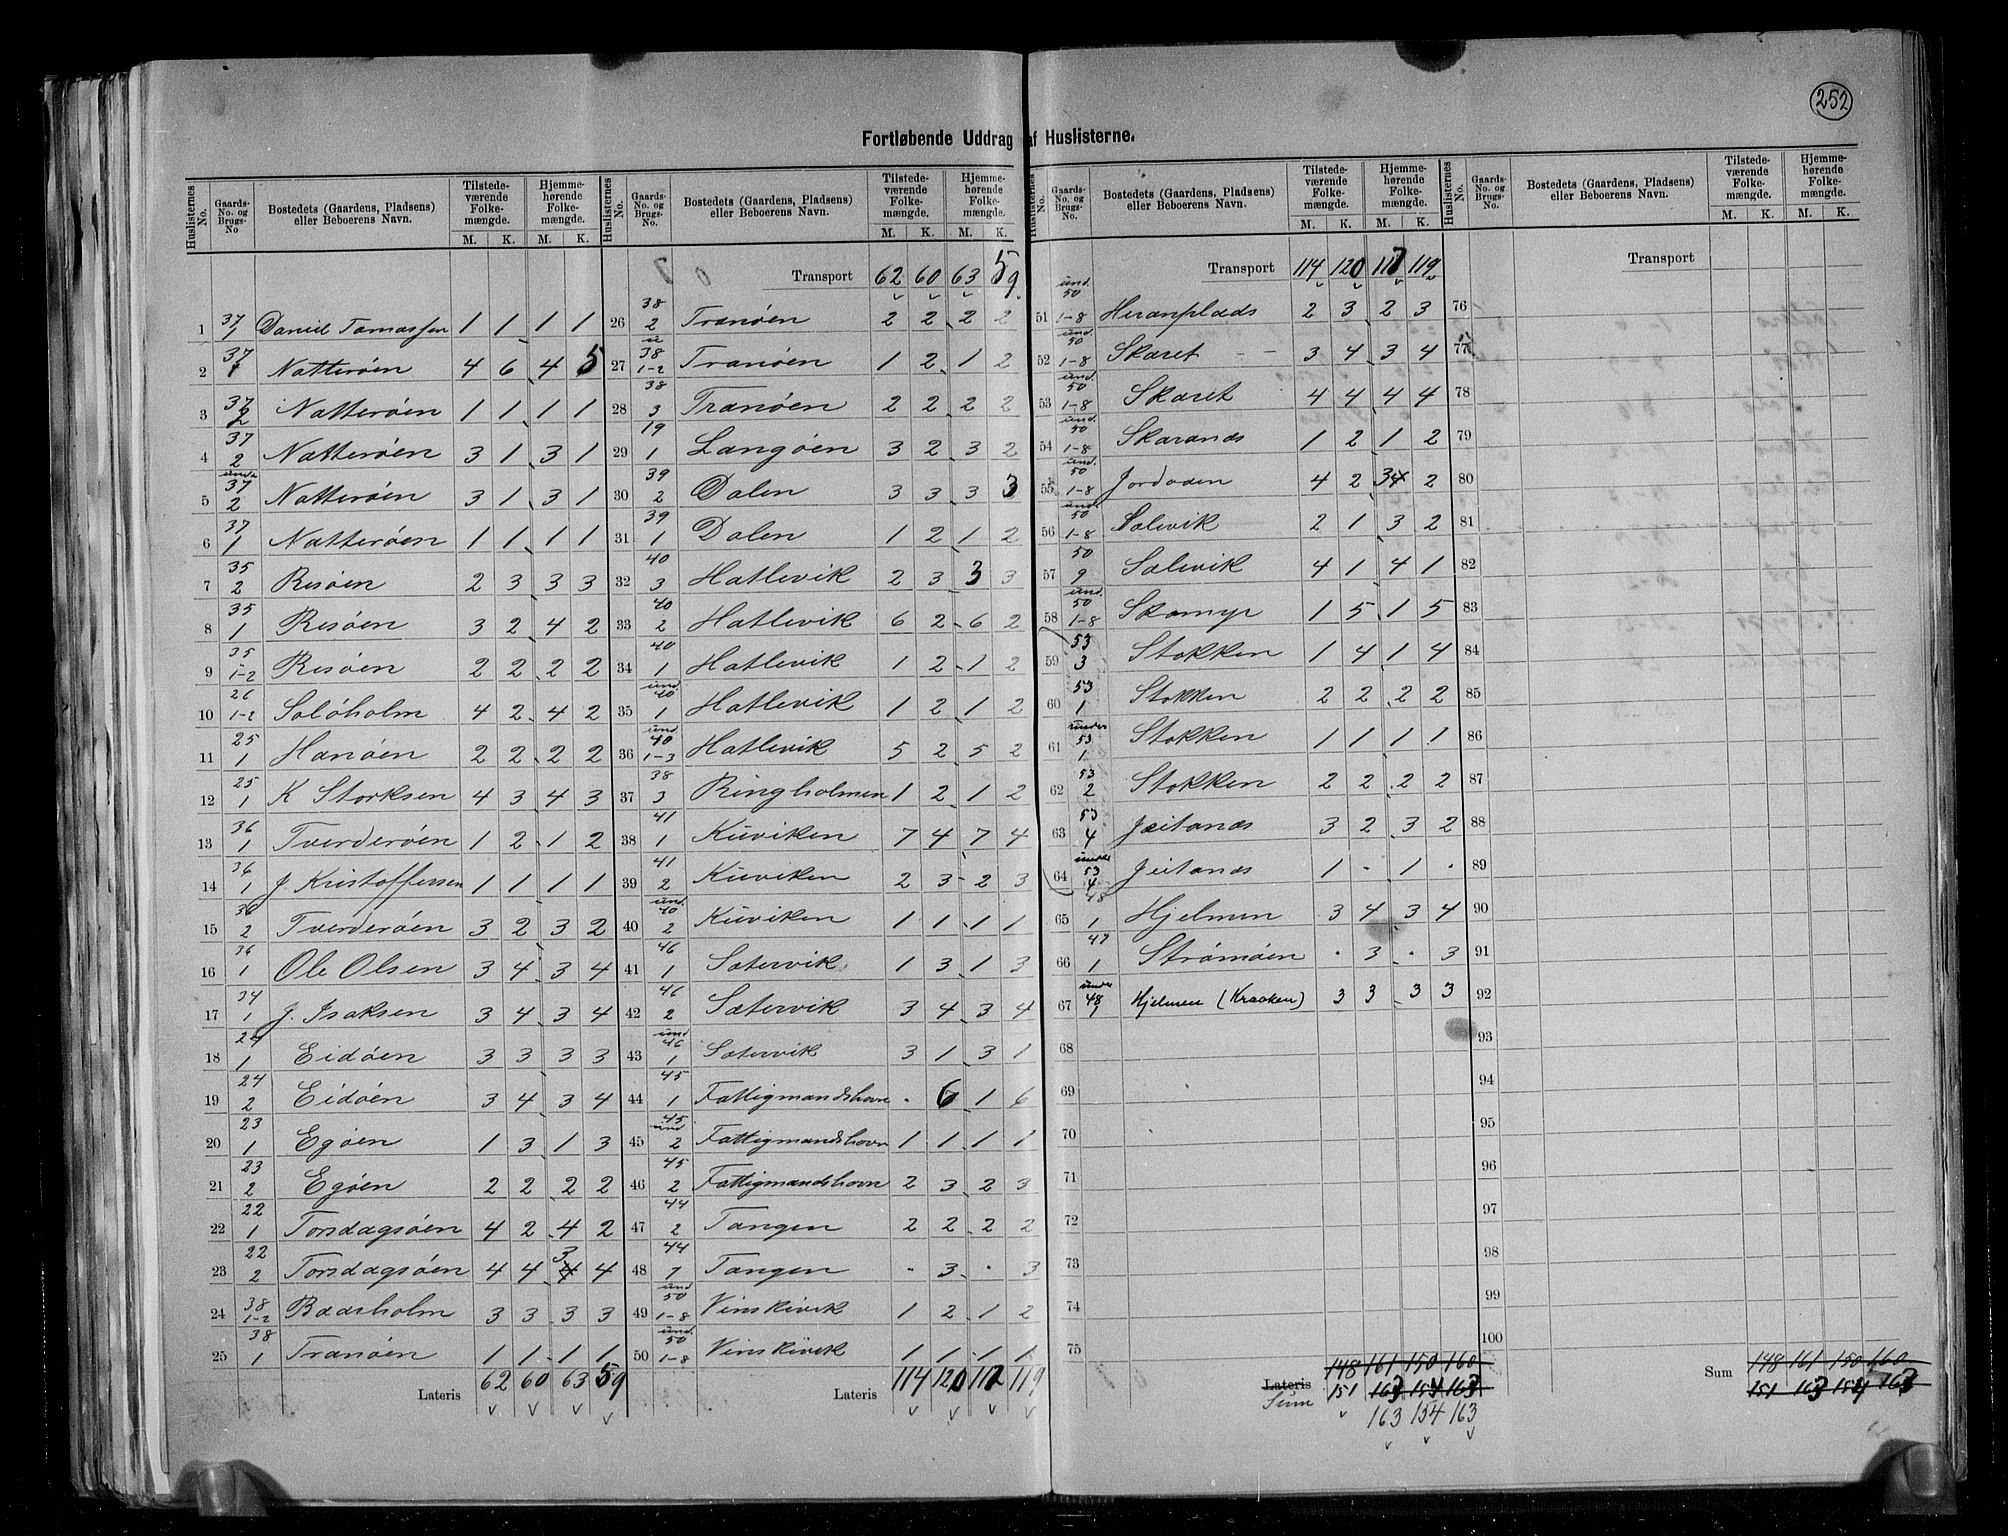 252
Fortløbende Uddrag af Huslisterne.
Huslisternes No. | Gaards-No. og Brugs-No | Bostedets (Gaardens, Pladsens) eller Beboerens Navn. | Tilstedeværende Folkemængde. M. K. | Hjemmehørende Folkemængde. M. K.
1 37/1 Daniel Tomassen 1 1 1 1
2 37/1 Natterøen 4 6 4 5
3 37/2 Natterøen 1 1 1 1
4 37/2 Natterøen 3 1 3 1
5 under 37/2 Natterøen 3 1 3 1
6 37/1 Natterøen 1 1 1 1
7 35/2 Risøen 2 3 3 3
8 35/1 Risøen 3 2 4 2
9 35/1-2 Risøen 2 2 2 2
10 26/1-2 Soløholm 4 2 4 2
11 25/1 Hanøen 2 2 2 2
12 25/1 K Storksen 4 3 4 3
13 36/1 Tverderøen 1 2 1 2
14 36/1 J Kristoffersen 1 1 1 1
15 36/2 Tverderøen 3 2 3 2
16 36/1 Ole Olsen 3 4 3 4
17 34/1 J. Isaksen 3 4 3 4
18 24/1 Eidøen 3 3 3 3
19 24/2 Eidøen 3 4 3 4
20 23/1 Egøen 1 3 1 3
21 23/2 Egøen 2 2 2 2
22 22/1 Torsdagsøen 4 2 4 2
23 22/2 Torsdagsøen 4 4 3 4
24 38/1-2 Baarholm 3 3 3 3
25 38/1 Tranøen 1 1 1 1
Lateris 62 60 63 59
Huslisternes No. | Gaards-No. og Brugs-No. | Bostedets (Gaardens, Pladsens) eller Beboerens Navn. | Tilstedeværende Folkemængde. M. K. | Hjemmehørende Folkemængde. M. K.
Transport 62 60 63 59
26 38/2 Tranøen 2 2 2 2
27 u 38/1-2 Tranøen 1 2 1 2
28 38/3 Tranøen 2 2 2 2
29 19/1 Langøen 3 2 3 2
30 39/2 Dalen 3 3 3 3
31 39/1 Dalen 1 2 1 2
32 40/3 Hatlevik 2 3 3 3
33 40/2 Hatlevik 6 2 6 2
34 40/1 Hatlevik 1 2 1 2
35 und. 40/1 Hatlevik 1 2 1 2
36 und. 40/1-3 Hatlevik 5 2 5 2
37 38/3 Ringholmen 1 2 1 2
38 41/1 Kuviken 7 4 7 4
39 41/2 Kuviken 2 3 2 3
40 und. 40/2 Kuviken 1 1 1 1
41 46/1 Sætervik 1 3 1 3
42 46/2 Sætervik 3 4 3 4
43 und 46/1 Sætervik 3 1 3 1
44 45/1 Fattigmandshavn · 6 1 6
45 45 und/2 Fattigmandshavn 1 1 1 1
46 45/2 Fattigmandshavn 2 3 2 3
47 44/2 Tangen 2 2 2 2
48 44/1 Tangen · 3 · 3
49 und 50/1-8 Vinskivik 1 2 1 2
50 und. 50/1-8 Vinskivik 1 1 1 1
Lateris 114 120 117 119
Huslisternes No. | Gaards-No. og Brugs-No. | Bostedets (Gaardens, Pladsens) eller Beboerens Navn. | Tilstedeværende Folkemængde. M. K. | Hjemmehørende Folkemængde. M. K.
Transport 114 120 117 119
51 und. 50/1-8 Heranplads 2 3 2 3
52 und. 50/1-8 Skaret 3 4 3 4
53 und. 50/1-8 Skaret 4 4 4 4
54 und. 50/1-8 Skaranæs 1 2 1 2
55 und. 50/1-8 Jordoden 4 2 34 2
56 und. 50/1-8 Salevik 2 1 3 2
57 50/9 Salevik 4 1 4 1
58 und. 50/1-8 Skamyr 1 5 1 5
59 53/3 Stokken 1 4 1 4
60 53/1 Stokken 2 2 2 2
61 under 53/1 Stokken 1 1 1 1
62 53/2 Stokken 2 2 2 2
63 53/4 Jeitanæs 3 2 3 2
64 under 53/4 Jeitanæs 1 · 1 ·
65 48/1 Hjelmen 3 4 3 4
66 47/1 Strømøen · 3 · 3
67 under 48/1 Hjelmen (Kraaken) 3 3 3 3
68
69
70
71
72
73
74
75
148 161 150 160
Lateris 151 163 154 163
Sum 163 154 163
Huslisternes No. | Gaards-No. og Brugs-No. | Bostedets (Gaardens, Pladsens) eller Beboerens Navn. | Tilstedeværende Folkemængde. M. K. | Hjemmehørende Folkemængde. M. K.
Transport
76
77
78
79
80
81
82
83
84
85
86
87
88
89
90
91
92
93
94
95
96
97
98
99
100
Sum 148 161 150 160
151 163 154 163